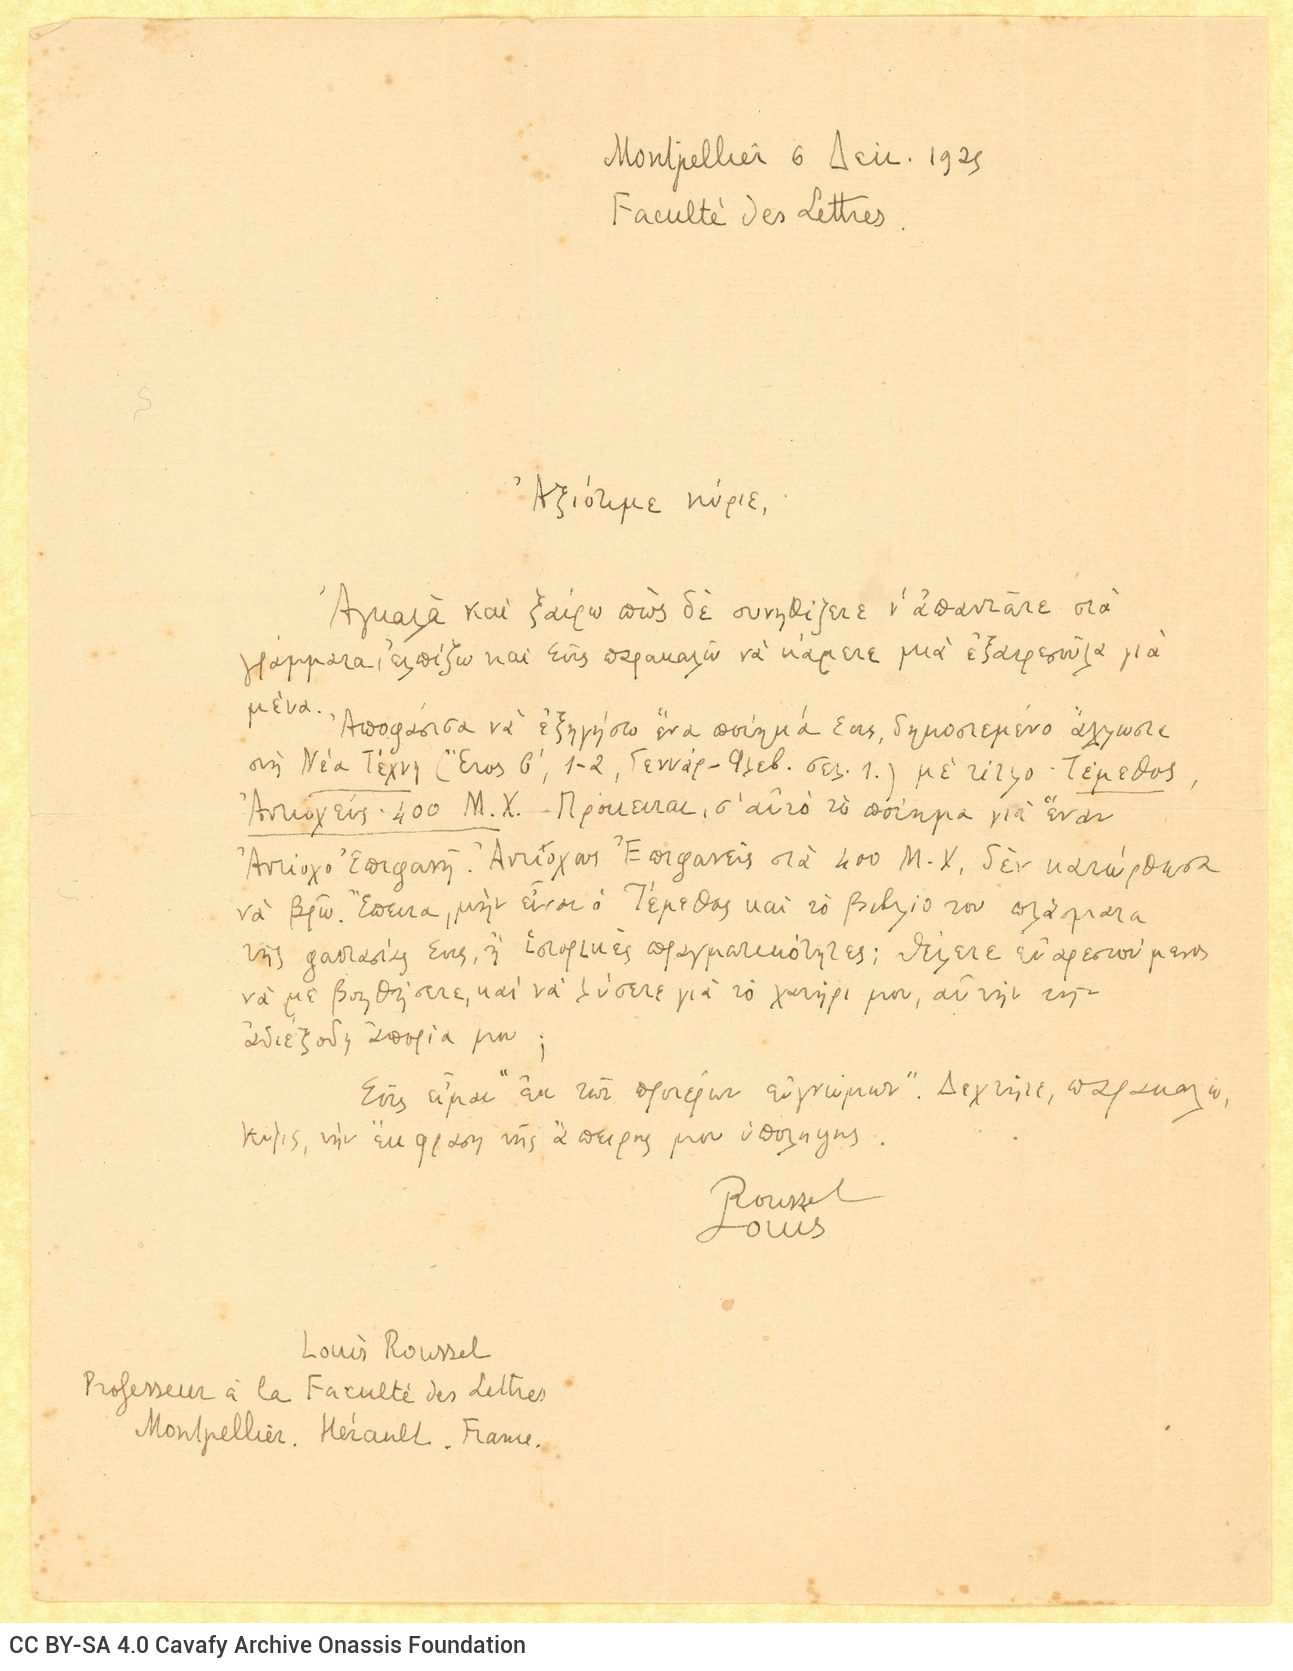 Montpellier 6 Δεκ. 1925
Faculté des Lettres.
Ἀξιότιμε κύριε,
Ἀγκαλὰ καὶ ξαίρω πὼς δὲ συνηθίζετε ν' ἀπαντᾶτε στὰ
γράμματα, ἐλπίζω καὶ Σᾶς παρακαλῶ νὰ κάμετε μιὰ ἐξαιρεσοῦλα γιὰ
μένα.
Ἀποφάσισα νὰ ἐξηγήσω ἕνα ποίημά Σας, δημοσιεμένο ἄλλωστε
στὴ Νέα Τέχνη (Ἔτος Β', 1-2, Γεννάρ-Φλεβ. σελ. 1.) μὲ τίτλο Τέμεθος,
Ἀντιοχεύς· 400 Μ.Χ. Πρόκειται, σ' αὐτὸ τὸ ποίημα γιὰ ἕναν
Ἀντίοχο Ἐπιφανῆ. Ἀντίοχους Ἐπιφανεῖς στὰ 400 Μ.Χ, δὲν κατώρθωσα
νὰ βρῶ. Ἔπειτα, μὴν εἶναι ὁ Τέμεθος καὶ τὸ βιβλίο του πλάσματα
τῆς φαντασίας Σας, ἢ ἱστορικὲς πραγματικότητες; Θέλετε εὐαρεστούμενος
νὰ μὲ βοηθήσετε, καὶ νὰ λύσετε γιὰ τὸ χατήρι μου, αὐτὴν τὴν
ἀδιέξοδη ἀπορία μου;
Σᾶς εἶμαι "ἐκ τῶν προτέρων εὐγνώμων". Δεχτῆτε, παρακαλῶ,
Κύριε, τὴν ἔκφραση τῆς ἄπειρης μου ὑπόληψης.
Roussel
Louis
Louis Roussel
Professeur à la Faculté des Lettres
Montpellier. Hérault. France.
CC BY-SA 4.0 Cavafy Archive Onassis Foundation